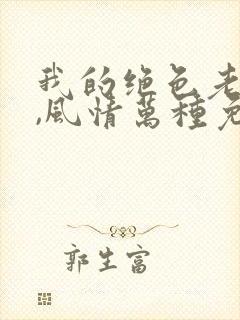 我的绝色老
,风情萬種免
郭生富